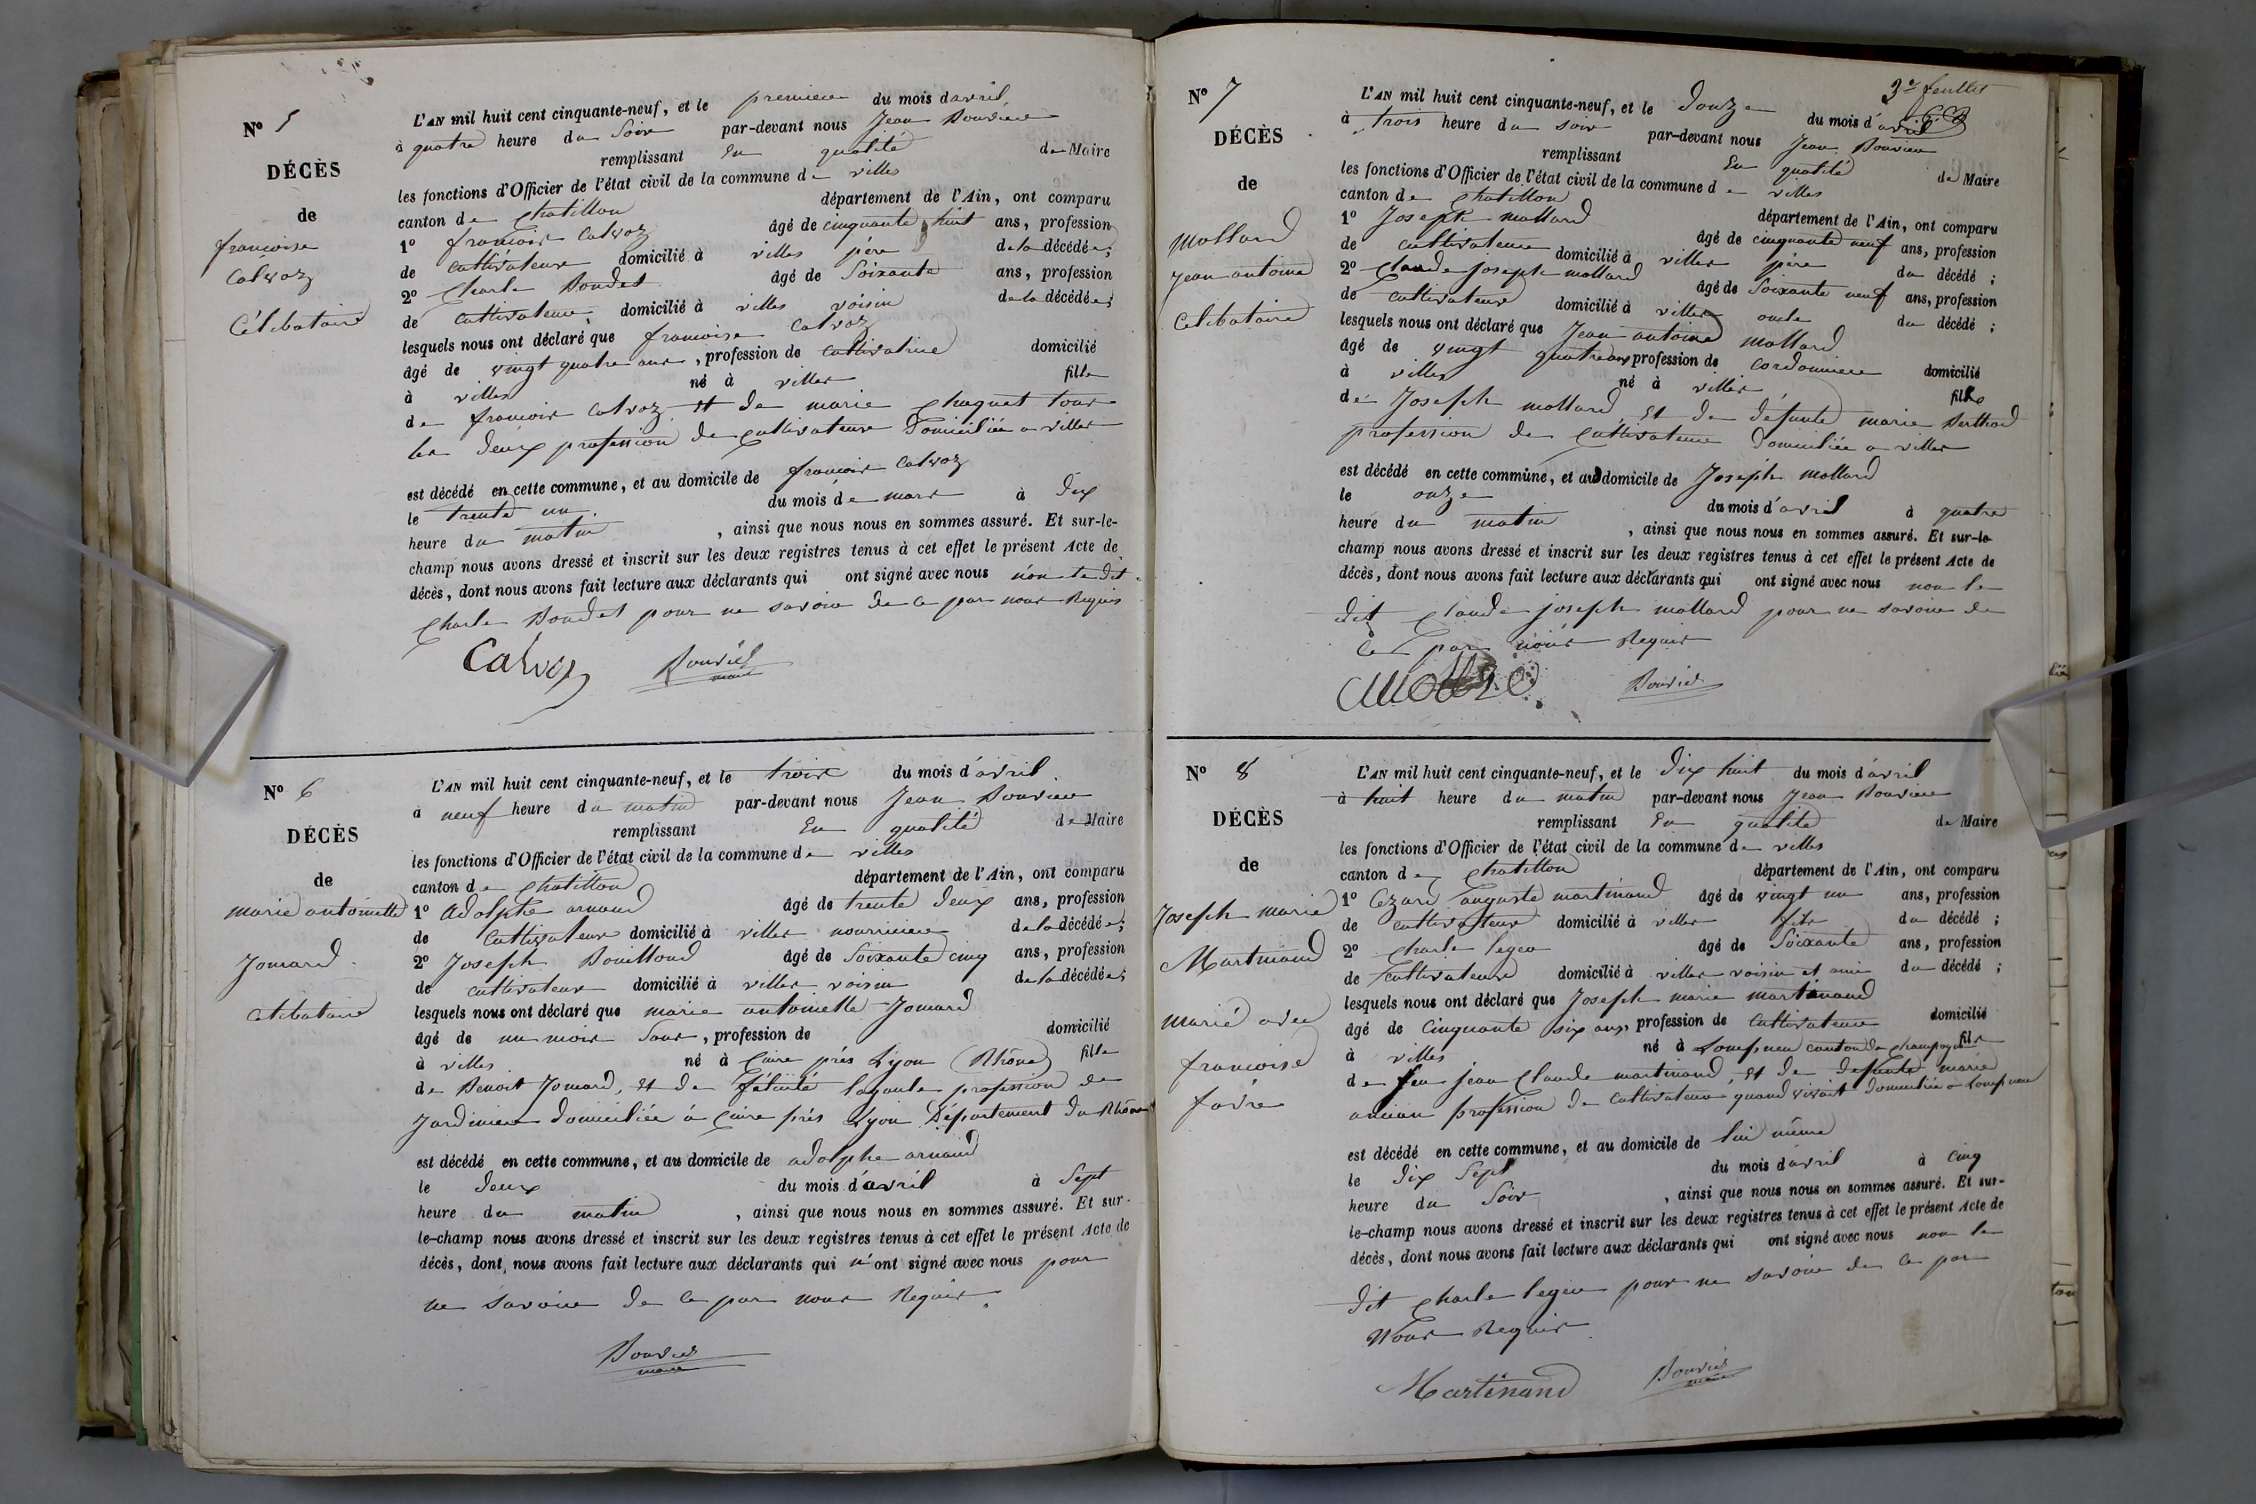 N° 5
DÉCÈS
de
francoise
Calvoz
Célibataire
L'AN mil huit cent cinquante-neuf, et le premiere du mois d'avril
à quatre heure du Soir par-devant nous Jean Bouvier
remplissant En qualité de Maire
les fonctions d'Officier de l'état civil de la commune de villes
canton de Chatillon département de l'Ain, ont comparu
1° francois Calvoz âgé de cinquante huit ans, profession
de cultivateur domicilié à villes père de la décédée;
2° Charle Boudet âgé de Soixante ans, profession
de cultivateur, domicilié à villes voisin de la décédée;
lesquels nous ont déclaré que francoise Calvoz
âgé de vingt quatre ans, profession de cultivatrice domicilié
à villes né à villes fille
de francois Calvoz et de marie Chaquet tous
les deux profession de Cultivateur Domiciliée a villes
est décédé en cette commune, et au domicile de francois Calvoz
le trente un du mois de mars à dix
heure du matin, ainsi que nous nous en sommes assuré. Et sur-le-
champ nous avons dressé et inscrit sur les deux registres tenus à cet effet le présent Acte de
décès, dont nous avons fait lecture aux déclarants qui ont signé avec nous non le dit
Charle Boudet pour ne savoir de ce par nous Requis
Calvoz Bouvier
maire
N° 6
DÉCÈS
de
marie antoinette
Jomard
célibataire
L'AN mil huit cent cinquante-neuf, et le trois du mois d'avril
à neuf heure du matin par-devant nous Jean Bouvier
remplissant En qualité de Maire
les fonctions d'Officier de l'état civil de la commune de villes
canton de Chatillon département de l'Ain, ont comparu
1° Adolphe arnaud âgé de trente deux ans, profession
de cultivateur domicilié à villes nourricier de la décédée;
2° Joseph Bouilloud âgé de Soixante cinq ans, profession
de cultivateur domicilié à villes voisin de la décédée;
lesquels nous ont déclaré que marie antoinette Jomard
âgé de un mois Jour, profession de domicilié
à villes né à Cuire près Lyon (Rhône) fille
de Benoit Jomard, et de félicité profession de
Jardinier domiciliée à Cuire près Lyon Département du Rhône
est décédé en cette commune, et au domicile de adolphe arnaud
le deux du mois d'avril à Sept
heure du matin, ainsi que nous nous en sommes assuré. Et sur-
le-champ nous avons dressé et inscrit sur les deux registres tenus à cet effet le présent Acte de
décès, dont nous avons fait lecture aux déclarants qui n'ont signé avec nous pour
ne savoir de ce par nous Requis
Bouvier
maire
3e feuillet
N° 7
DÉCÈS
de
Mollard
Jean antoine
Célibataire
L'AN mil huit cent cinquante-neuf, et le Douze du mois d'avril
à trois heure du soir par-devant nous Jean Bouvier
remplissant En qualité de Maire
les fonctions d'Officier de l'état civil de la commune de villes
canton de Chatillon département de l'Ain, ont comparu
1° Joseph mollard âgé de cinquante neuf ans, profession
de cultivateur domicilié à villes père du décédé;
2° Claude joseph mollard âgé de Soixante neuf ans, profession
de cultivateur domicilié à villes oncle du décédé;
lesquels nous ont déclaré que Jean antoine mollard
âgé de vingt quatre ans profession de cordonnier domicilié
à villes né à villes fils
de Joseph mollard, et de défunte marie Berthod
profession de Cultivateur Domiciliée a villes
est décédé en cette commune, et au domicile de Joseph mollard
le onze du mois d'avril à quatre
heure du matin, ainsi que nous nous en sommes assuré. Et sur-le-
champ nous avons dressé et inscrit sur les deux registres tenus à cet effet le présent Acte de
décès, dont nous avons fait lecture aux déclarants qui ont signé avec nous non le
dit Claude joseph mollard pour ne savoir de
ce par nous Requis
Bouvier
N° 8
DÉCÈS
de
Joseph marie
Martinand
marié avec
francoise
favre
L'AN mil huit cent cinquante-neuf, et le Dix huit du mois d'avril
à huit heure du matin par-devant nous Jean Bouvier
remplissant En qualité de Maire
les fonctions d'Officier de l'état civil de la commune de villes
canton de Chatillon département de l'Ain, ont comparu
1° Cezard auguste martinand âgé de vingt un ans, profession
de cultivateur domicilié à villes fils du décédé;
2° Charle leger âgé de Soixante ans, profession
de cultivateur domicilié à villes voisin et ami du décédé;
lesquels nous ont déclaré que Joseph marie martinand
âgé de cinquante six ans, profession de cultivateur domicilié
à villes né à Lompneu canton de champagne fils
de feu jean Claude martinand, et de defunte marie
ancian profession de cultivateur quand vivait domiciliée a Lompneu
est décédé en cette commune, et au domicile de lui même
le dix Sept du mois d'avril à cinq
heure du Soir, ainsi que nous nous en sommes assuré. Et sur-
le-champ nous avons dressé et inscrit sur les deux registres tenus à cet effet le présent Acte de
décès, dont nous avons fait lecture aux déclarants qui ont signé avec nous non le
dit Charle leger pour ne savoir de ce par
Nous Requis
Martinand Bouvier
maire